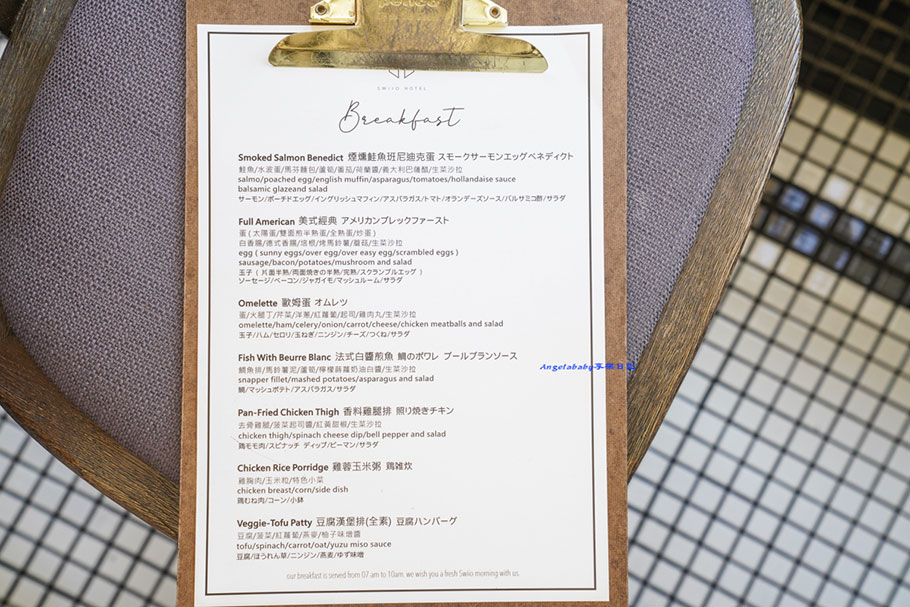 SWIIO HOTEL
Breakfast
Smoked Salmon Benedict 煙燻鮭魚班尼迪克蛋 スモークサーモンエッグベネディクト
鮭魚/水波蛋/馬芬麵包/蘆筍/番茄/荷蘭醬/義大利巴薩醋/生菜沙拉
salmo/poached egg/english muffin/asparagus/tomatoes/hollandaise sauce
balsamic glazeand salad
サーモン/ポーチドエッグ/イングリッシュマフィン/アスパラガス/トマト/オランデーズソース/バルサミコ酢/サラダ
Full American 美式經典 アメリカンブレックファースト
蛋 ( 太陽蛋/雙面煎半熟蛋/全熟蛋/炒蛋 )
白香腸/德式香腸/培根/烤馬鈴薯/蘑菇/生菜沙拉
egg ( sunny eggs/over egg/over easy egg/scrambled eggs )
sausage/bacon/potatoes/mushroom and salad
玉子 ( 片面半熟/両面焼きの半熟/完熟/スクランブルエッグ )
ソーセージ/ベーコン/ジャガイモ/マッシュルーム/サラダ
Omelette 歐姆蛋 オムレツ
蛋/火腿丁/芹菜/洋蔥/紅蘿蔔/起司/雞肉丸/生菜沙拉
omelette/ham/celery/onion/carrot/cheese/chicken meatballs and salad
玉子/ハム/セロリ/玉ねぎ/ニンジン/チーズ/つくね/サラダ
Fish With Beurre Blanc 法式白醬煎魚 鯛のポワレ ブールブランソース
鯛魚排/馬鈴薯泥/蘆筍/檸檬蒔蘿奶油白醬/生菜沙拉
snapper fillet/mashed potatoes/asparagus and salad
鯛/マッシュポテト/アスパラガス/サラダ
Pan-Fried Chicken Thigh 香料雞腿排 照り焼きチキン
去骨雞腿/菠菜起司醬/紅黃甜椒/生菜沙拉
chicken thigh/spinach cheese dip/bell pepper and salad
鶏モモ肉/スピナッチ ディップ/ピーマン/サラダ
Chicken Rice Porridge 雞蓉玉米粥 鶏雑炊
雞胸肉/玉米粒/特色小菜
chicken breast/corn/side dish
鶏むね肉/コーン/小鉢
Veggie-Tofu Patty 豆腐漢堡排(全素) 豆腐ハンバーグ
豆腐/菠菜/紅蘿蔔/燕麥/柚子味噌醬
tofu/spinach/carrot/oat/yuzu miso sauce
豆腐/ほうれん草/ニンジン/燕麦/ゆず味噌
our breakfast is served from 07 am to 10am. we wish you a fresh Swiio morning with us.
Angelababy享樂日記